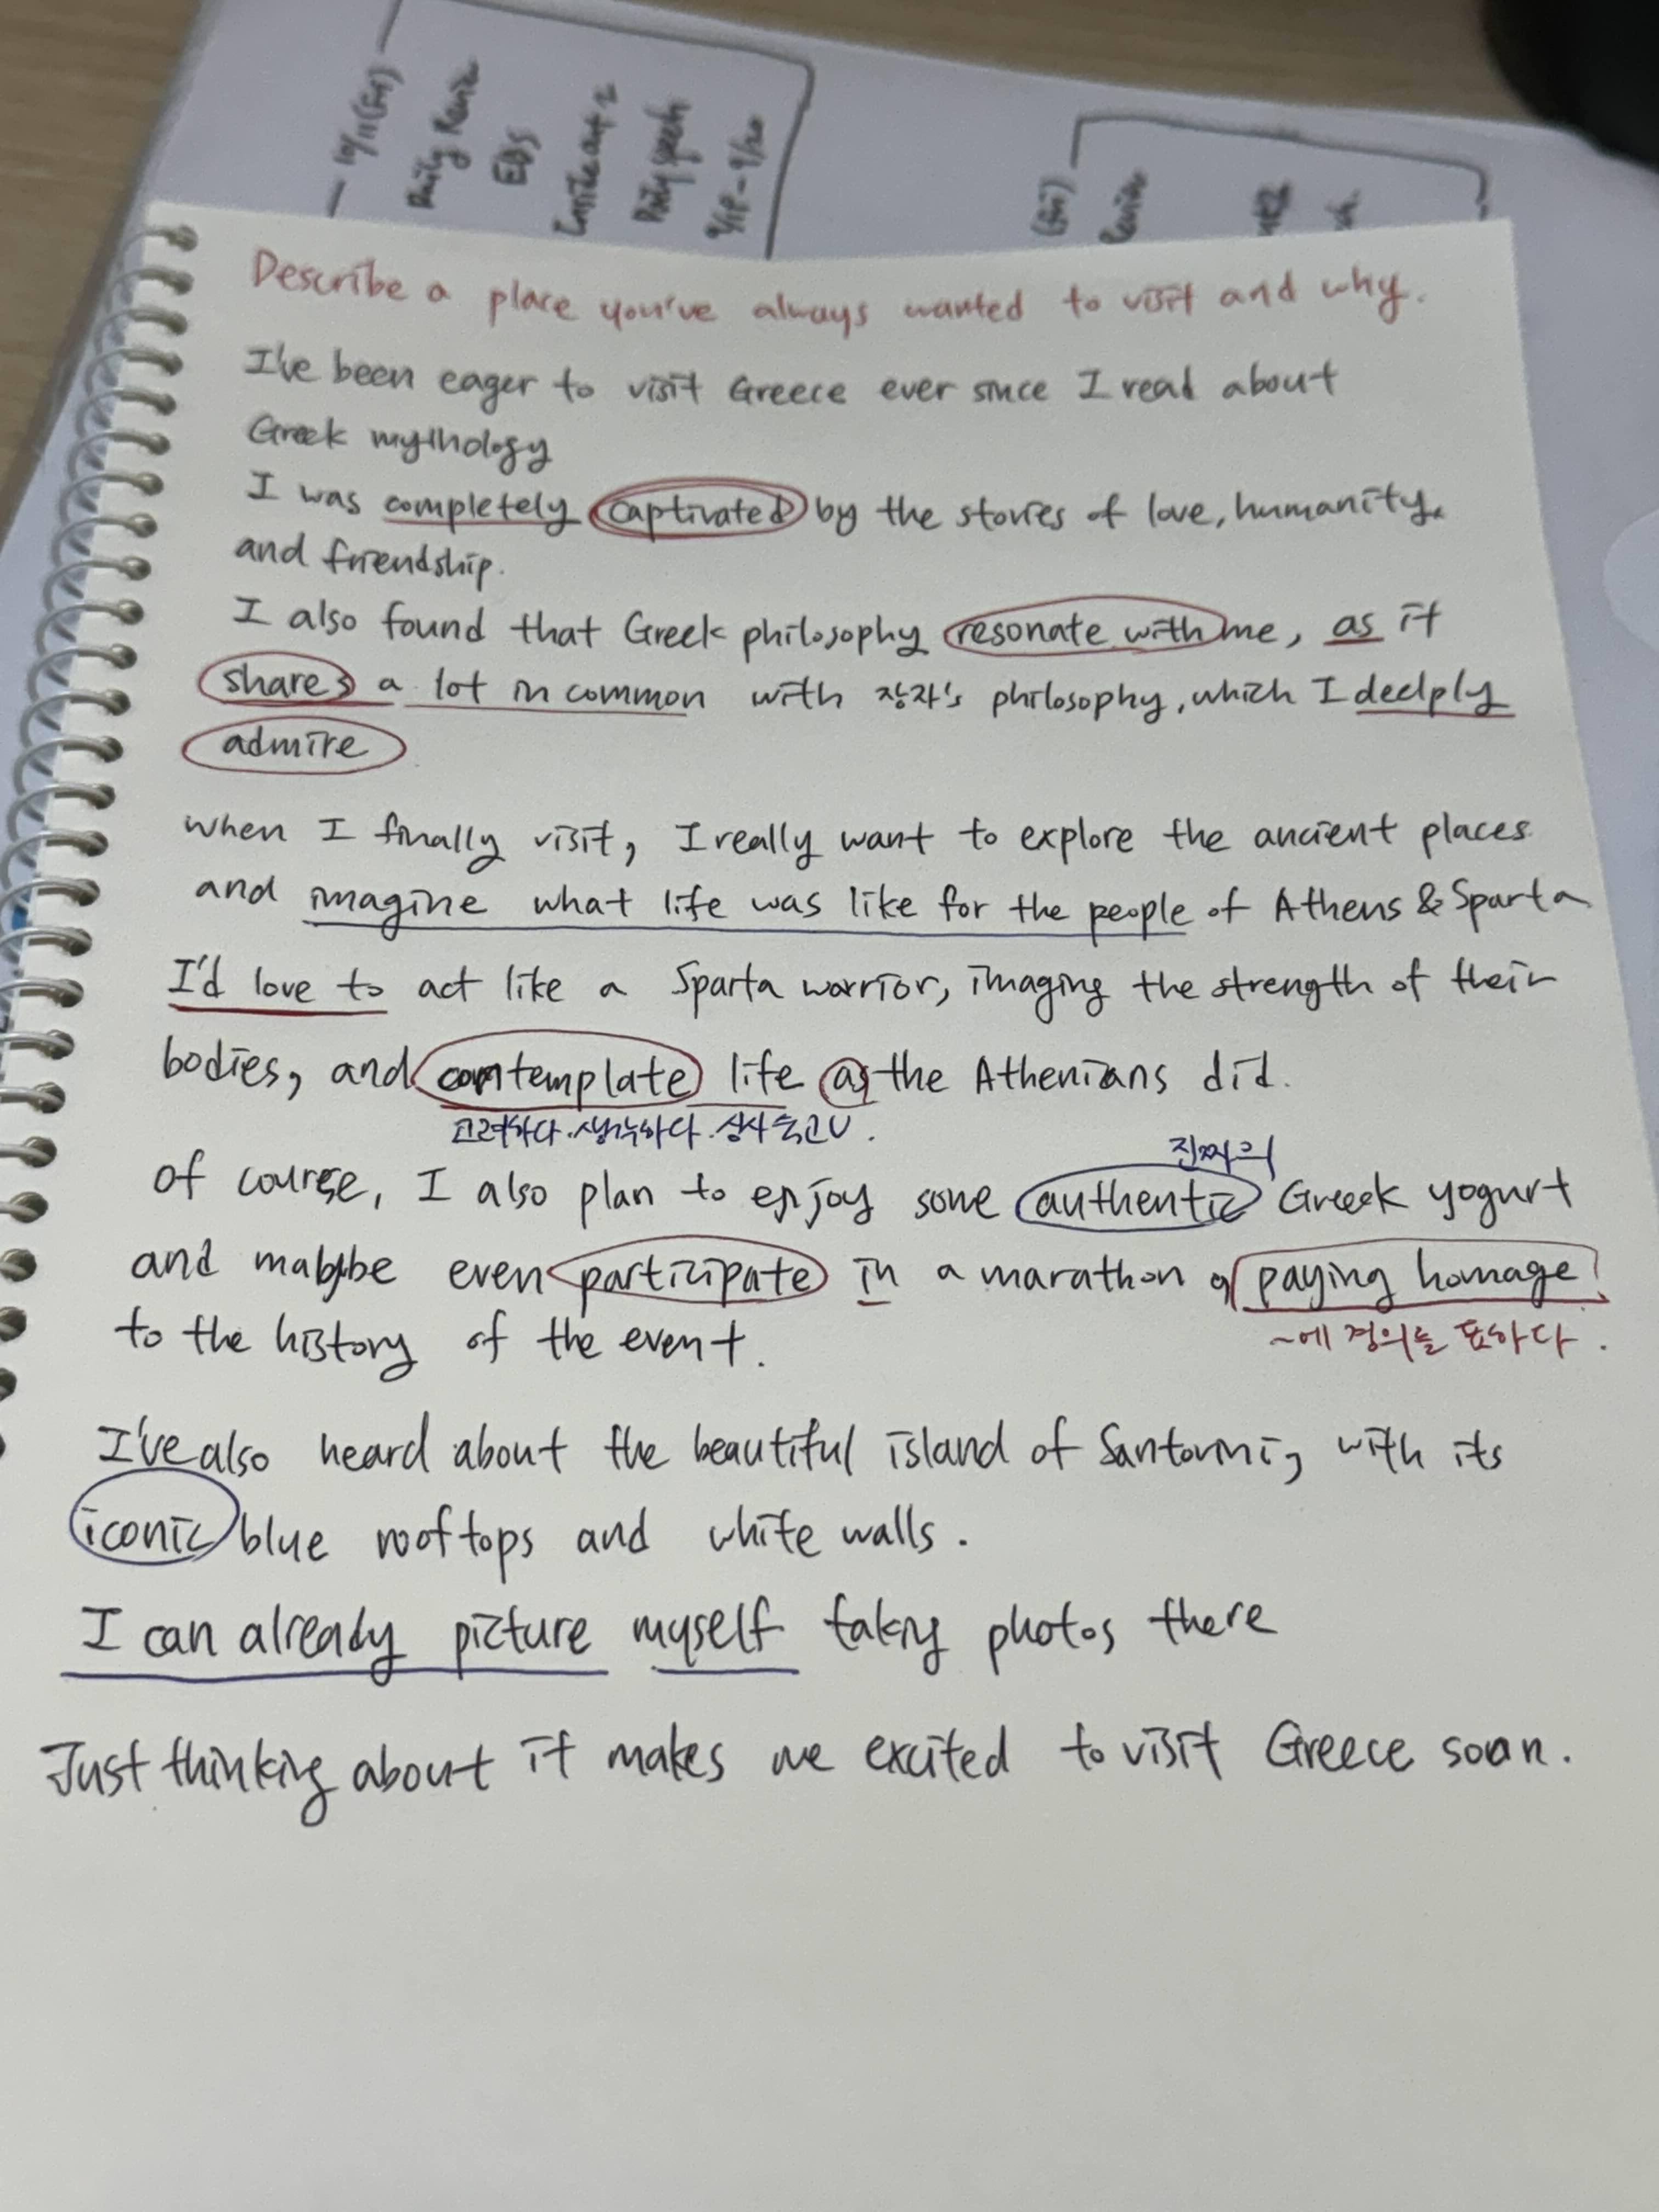 10/11(Fri)
Daily Review
EBS
Inside out 2
Daily speech
9/19-9/20
(Fri)
Review
Describe a place you've always wanted to visit and why.
I've been eager to visit Greece ever since I read about
Greek mythology
I was completely captivated by the stories of love, humanity,
and friendship.
I also found that Greek philosophy resonate with me, as it
shares a lot in common with 장자's philosophy, which I deeply
admire
when I finally visit, I really want to explore the ancient places
and imagine what life was like for the people of Athens & Sparta
I'd love to act like a Sparta warrior, imaging the strength of their
bodies, and contemplate life as the Athenians did.
고려하다. 생각하다. 심사숙고.
진짜의
of course, I also plan to enjoy some authentic Greek yogurt
and maybe even participate in a marathon paying homage
to the history of the event.
~에 경의를 표하다.
I've also heard about the beautiful island of Santorini, with its
iconic blue rooftops and white walls.
I can already picture myself taking photos there
Just thinking about it makes me excited to visit Greece soon.